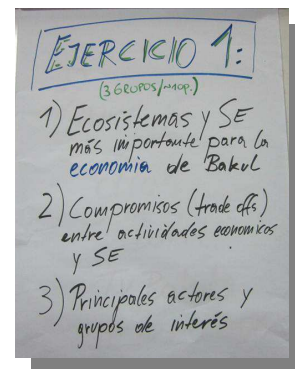 EJERCICIO 1:
(3 GRUPOS/~10p.)
1) Ecosistemas y SE
más importante para la
economia de Bakul
2) Compromisos (trade offs)
entre actividades economicos
y SE
3) Principales actores y
grupos de interés